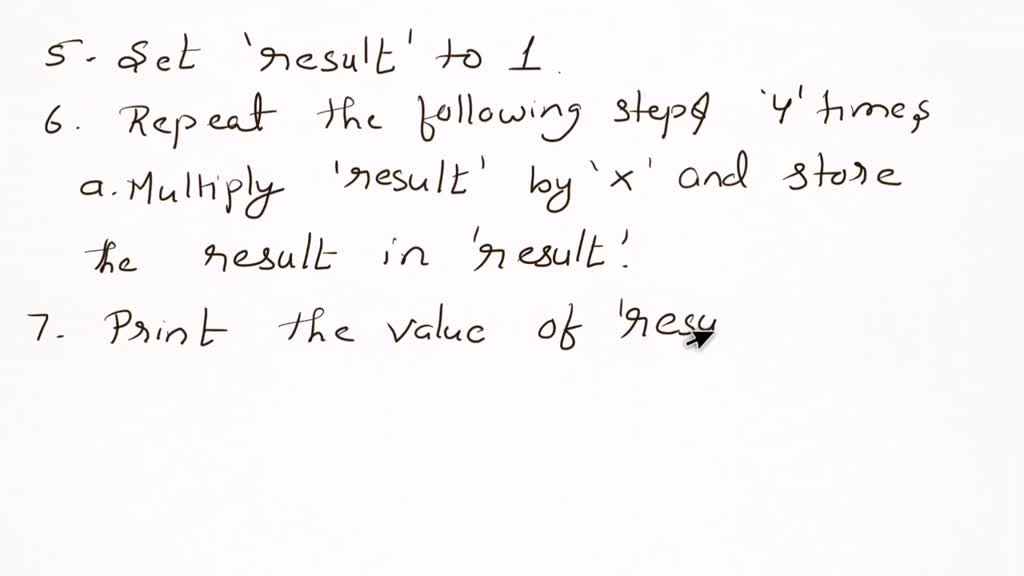 5. Set 'result' to 1.
6. Repeat the following steps 'y' times
a. Multiply 'result' by 'x' and store
the result in 'result'.
7. Print the value of 'resu